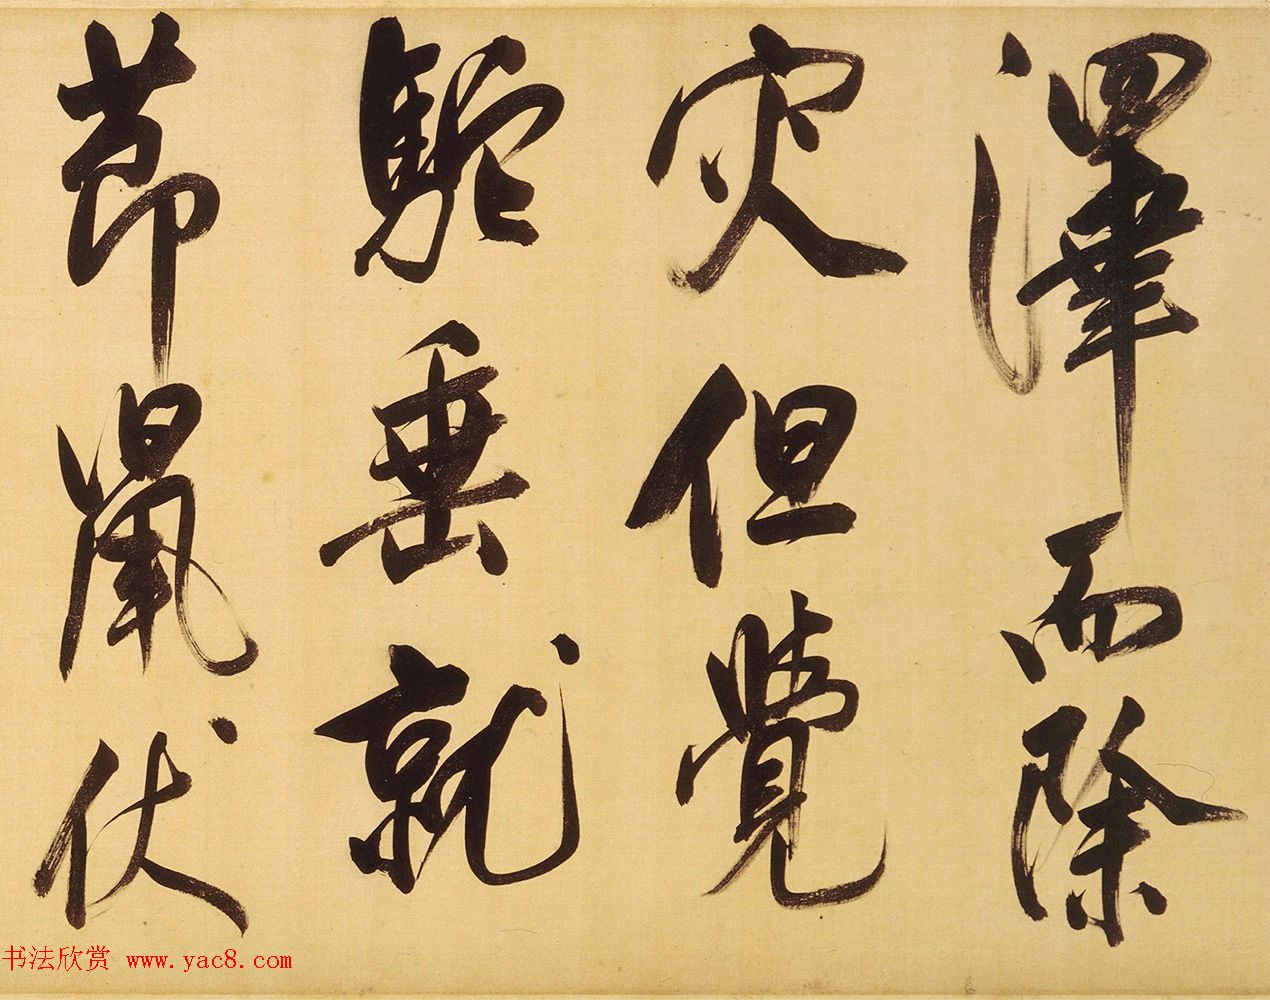 澤而除
灾但覺
垂就
節鼠伏
书法欣赏 www.yac8.com